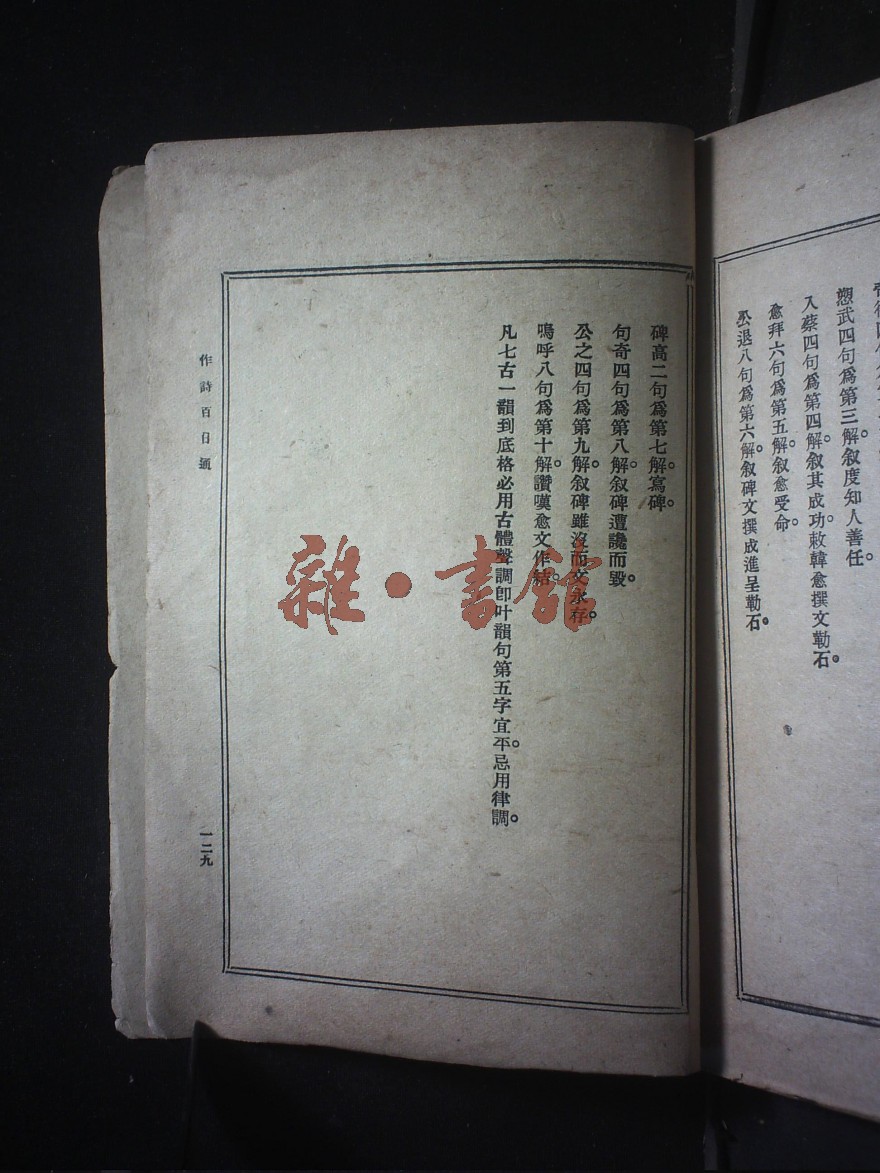 愬武四句爲第三解。叙度知人善任。
入蔡四句爲第四解。叙其成功。敕韓愈撰文勒石。
愈拜六句爲第五解。叙愈受命。
公退八句爲第六解。叙碑文撰成進呈勒石。
碑高二句爲第七解。寫碑。
句奇四句爲第八解。叙碑遭讒而毀。
公之四句爲第九解。叙碑雖沒而文永存。
嗚呼八句爲第十解。讚嘆愈文作結。
凡七古一韻到底格必用古體聲調卽叶韻句第五字宜平。忌用律調。
作詩百日通
一二九
雜·書館